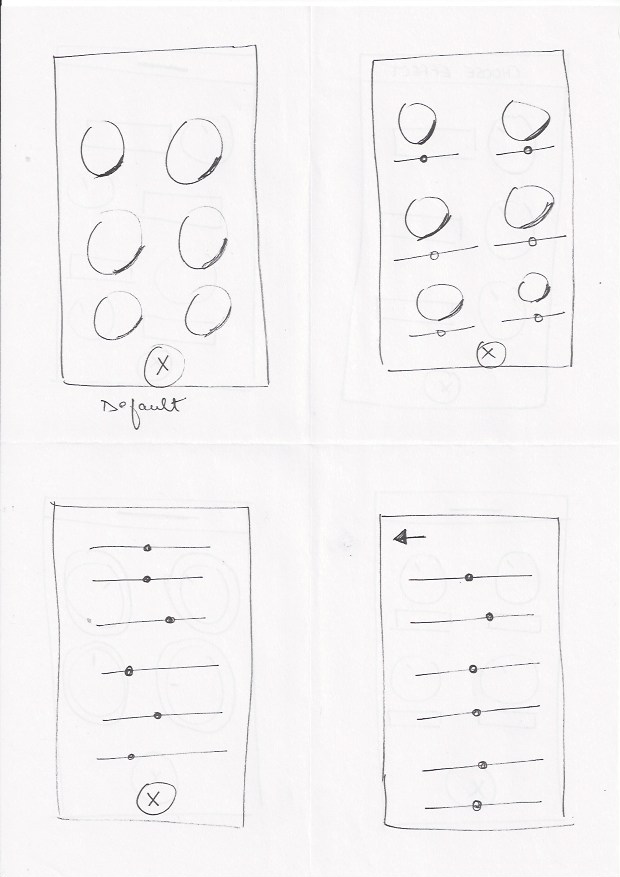 X
Default
X
X